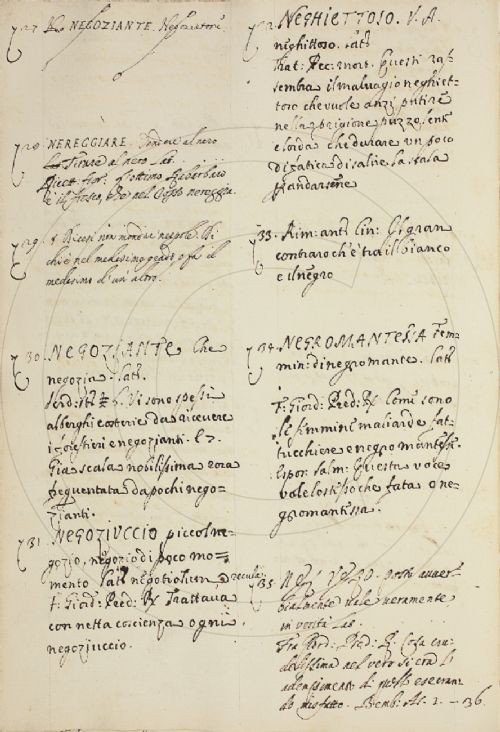 27 NEGOZIANTE. Negoziatore.
28 NEREGGIARE. Tendere al nero
Tirare al nero Lat.
e il che nel nereggia.
29. § Ricusi non mondar nespole. Di
chi è nel medesimo o fa il
medesimo d'un altro.
30. NEGOZIANTE Che
negozia. Lat.
Serd: ist: Vi sono spessi
alberghi e osterie da ricevere
i forestieri e negozianti. E 7.
Già scala nobilissima ora
frequentata da pochi nego-
zianti.
31. NEGOZIUCCIO piccol ne-
gozio, negozio di poco mo-
mento Lat: negotiolum recula
F: Giord: Pred: R. Trattava
con netta coscienza ogni
negoziuccio.
32. NEGHIETTOSO. V. A.
neghittoso. Lat:
Trat: Pec: mort. Questi ras-
sembra il malvagio neghiet-
toso che vuole anzi putire
nella prigione puzzolente
e lorda che durare un poco
di fatica di salir la scala
per andarsene
33. Rim: ant: Cin: Gran
contraro ch'è tra il bianco
e il negro
34. NEGROMANTESSA Fem-
min: di negromante. Lat:
F: Giord: Pred: R. Come sono
le femmine maliarde fat-
tucchiere e negromantesse.
Espos: Salm: Questa voce
vole lo stesso che fata o ne-
gromantessa.
35. NEL VERO. posto avver-
bialmente vale veramente
in verità Lat.
Fra Giord: Pred: R. Cosa cru-
delissima nel vero si era l'
adempimento di questo esecran-
do misfatto. Bemb: As. 2. - 136.